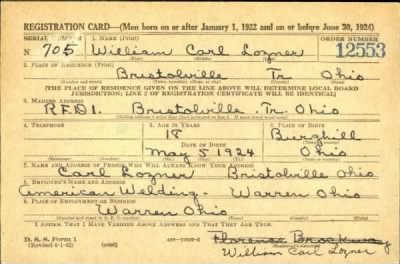 REGISTRATION CARD—(Men born on or after January 1, 1922 and on or before June 30, 1924)
SERIAL NUMBER 1. NAME (Print) ORDER NUMBER
N 705 William Carl Lozner 12553
(First) (Middle) (Last)
2. PLACE OF RESIDENCE (Print)
Bristolville Tr. Ohio
[THE PLACE OF RESIDENCE GIVEN ON THE LINE ABOVE WILL DETERMINE LOCAL BOARD
JURISDICTION; LINE 2 OF REGISTRATION CERTIFICATE WILL BE IDENTICAL]
3. MAILING ADDRESS
R.F.D 1. Bristolville Tr. Ohio
4. TELEPHONE 5. AGE IN YEARS 6. PLACE OF BIRTH
18 Burghill
DATE OF BIRTH
May 5 1924 Ohio
7. NAME AND ADDRESS OF PERSON WHO WILL ALWAYS KNOW YOUR ADDRESS
Carl Lozner Bristolville Ohio
8. EMPLOYER'S NAME AND ADDRESS
American Welding - Warren Ohio
9. PLACE OF EMPLOYMENT OR BUSINESS
Warren Ohio
I AFFIRM THAT I HAVE VERIFIED ABOVE ANSWERS AND THAT THEY ARE TRUE.
D. S. S. Form 1 Florence Brockway
(Revised 6-1-42) (over) William Carl Lozner